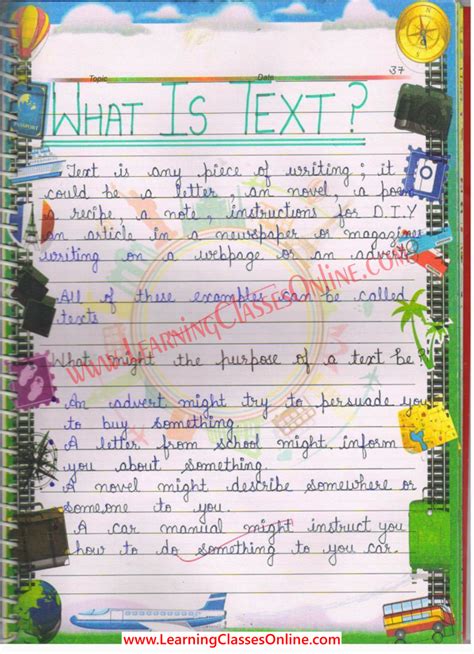 37
Topic Date
WHAT IS TEXT?
Text is any piece of writing; it
could be a letter an novel, a poem
a recipe, a note, instructions for D.I.Y
an article in a newspaper or magazines
writing on a webpage or an advert
All of these examples can be called
texts
www.LearningClassesOnline.com
What might the purpose of a text be?
An advert might try to persuade you
to buy something.
A letter from school might inform
you about something.
A novel might describe somewhere or
someone to you.
A car manual might instruct you
how to do something to you car.
PASSPORT
www.LearningClassesOnline.com